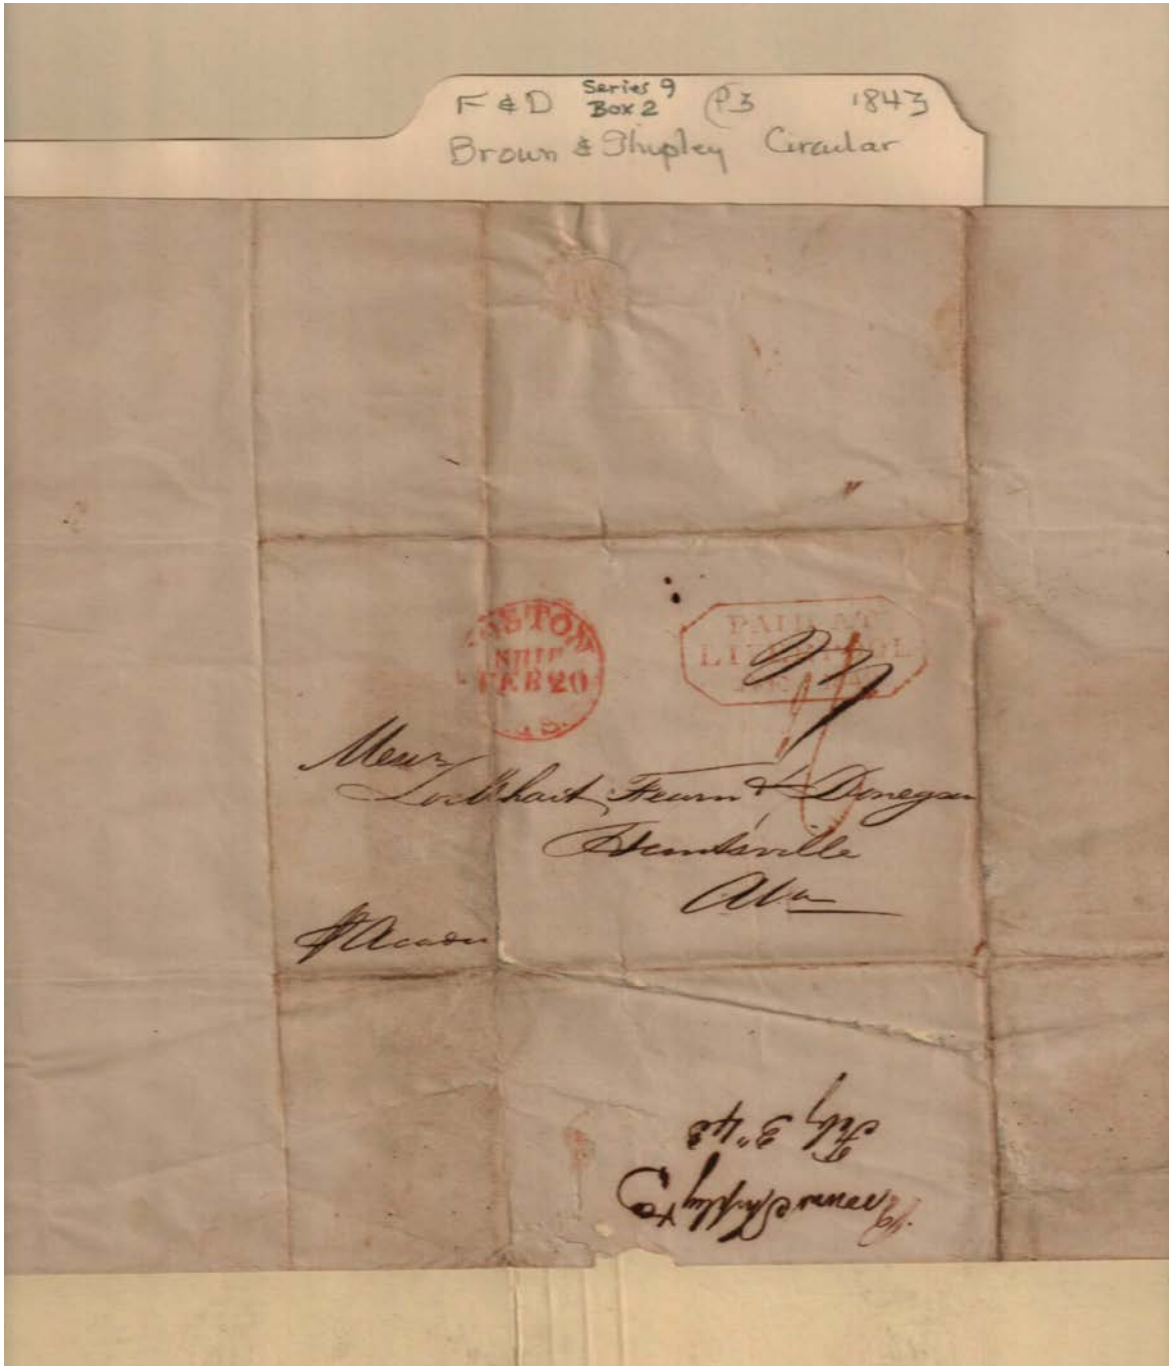 F & D Series 9 Box 2 P3 1843
Brown & Shipley Circular
BOSTON
SHIP
FEB 20
PAID AT
LIVERPOOL
Messrs
Lockhart Fearn & Donegan
Huntsville
Ala
Brown Shipley & Co
Feby 3" 43